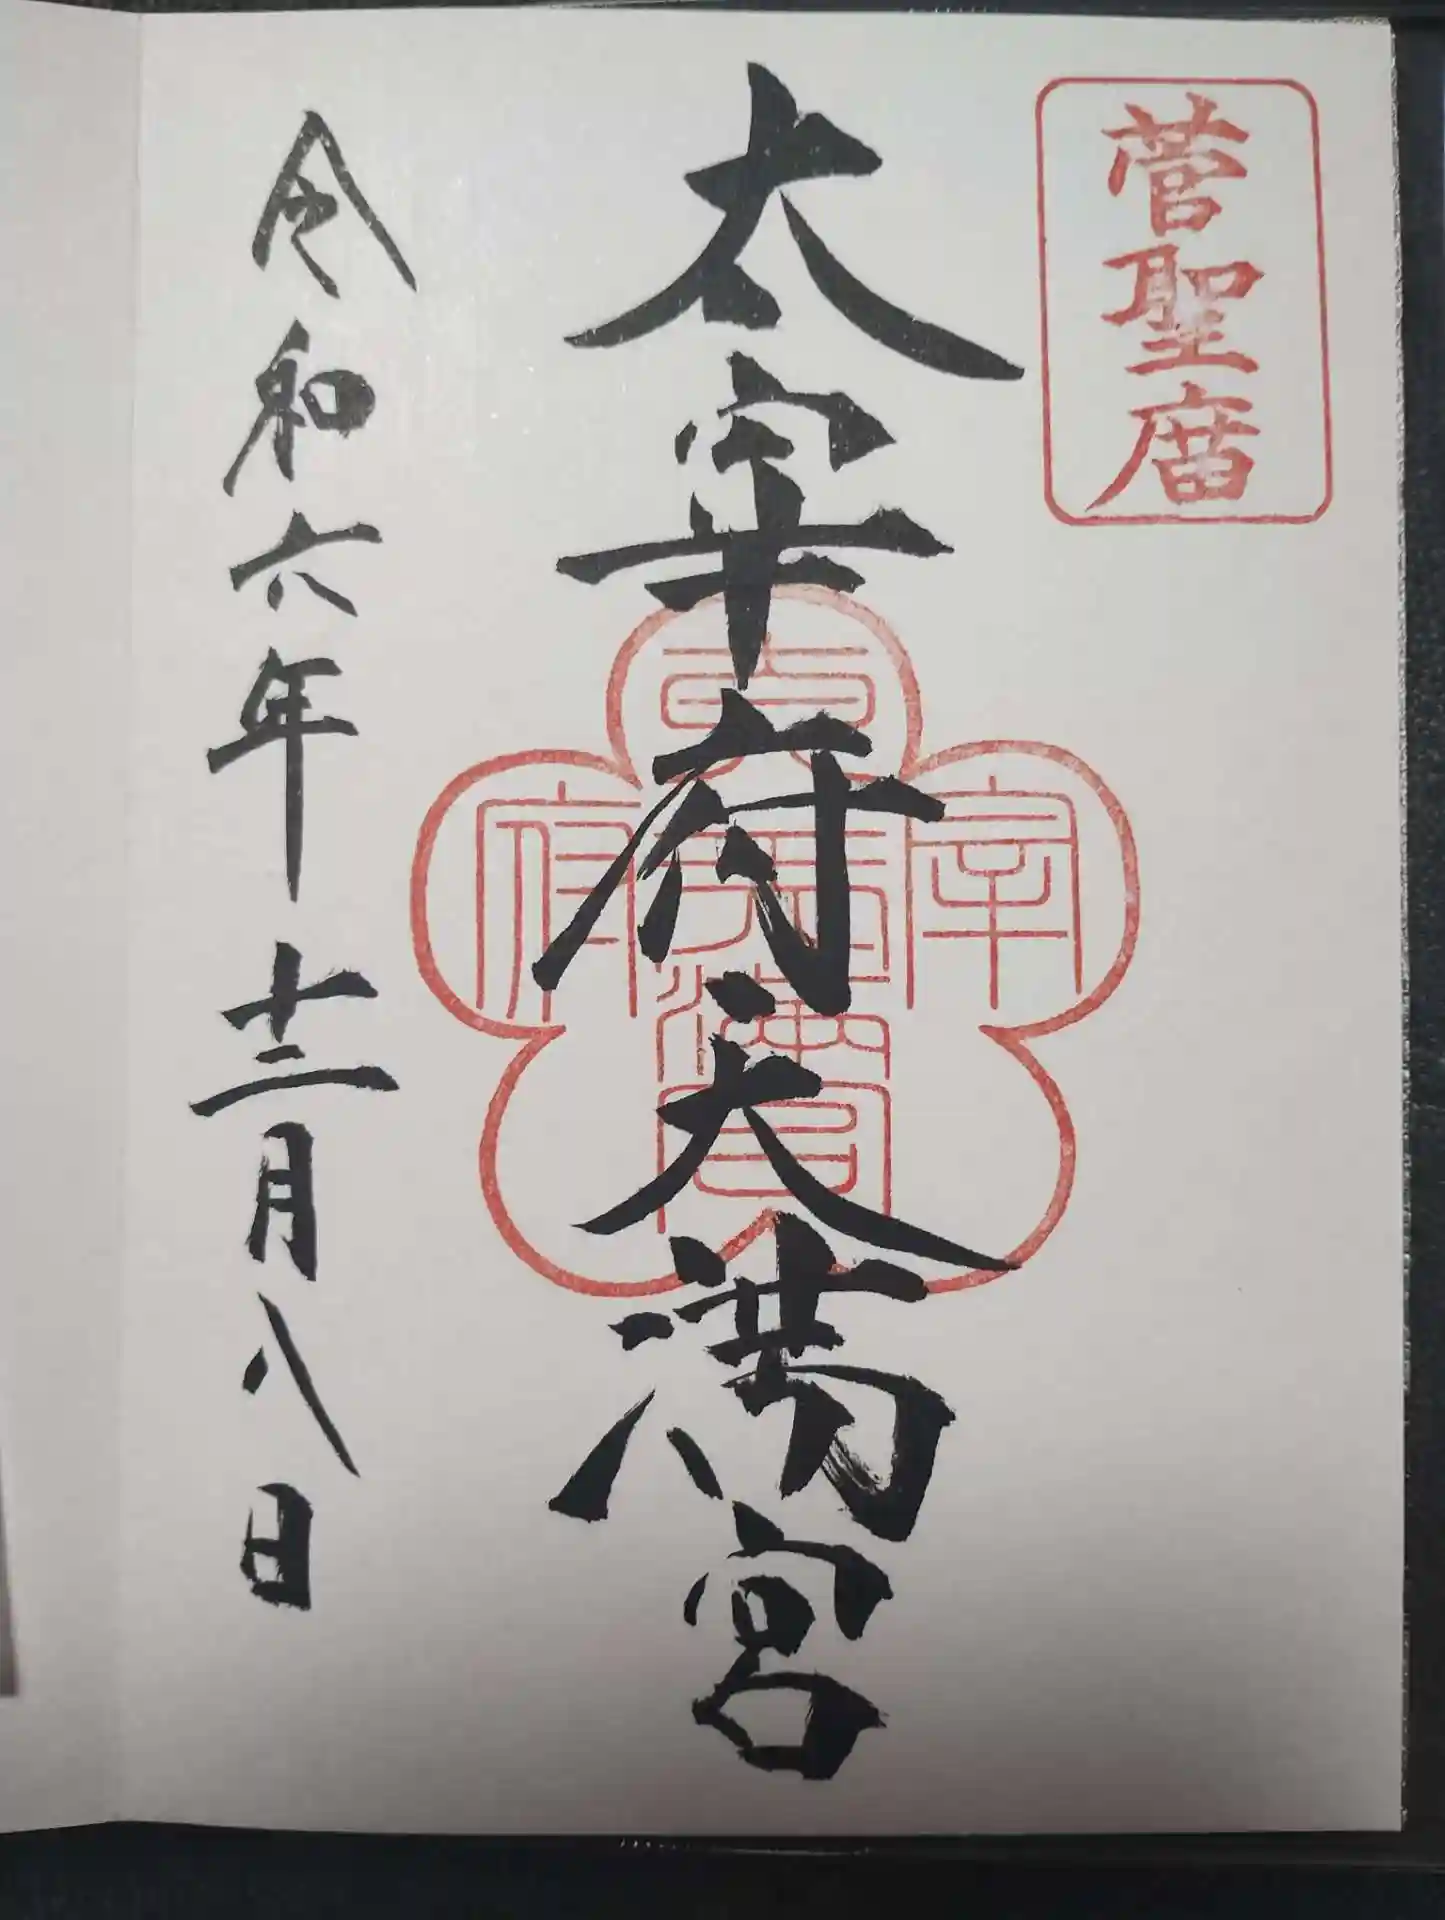 菅聖庿
太宰府天満宮
令和六年十二月八日